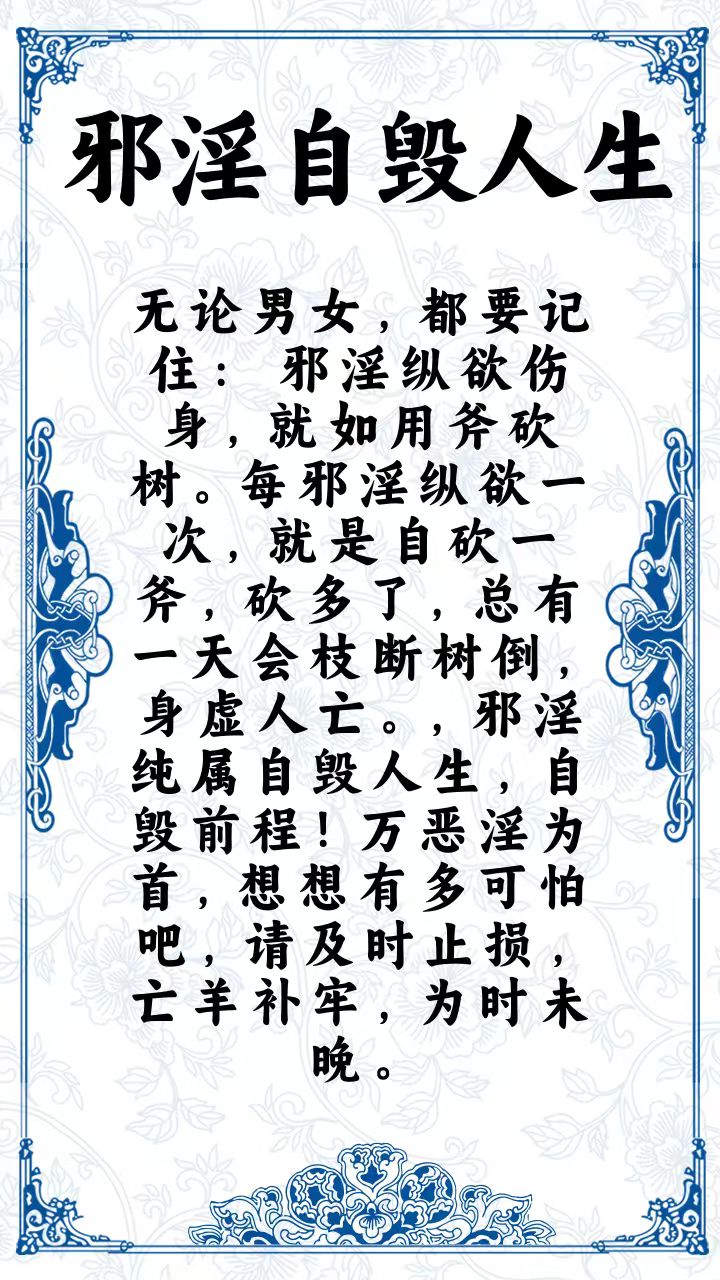 邪淫自毁人生
无论男女，都要记
住： 邪淫纵欲伤
身，就如用斧砍
树。每邪淫纵欲一
次，就是自砍一
斧，砍多了，总有
一天会枝断树倒，
身虚人亡。，邪淫
纯属自毁人生，自
毁前程！万恶淫为
首，想想有多可怕
吧，请及时止损，
亡羊补牢，为时未
晚。